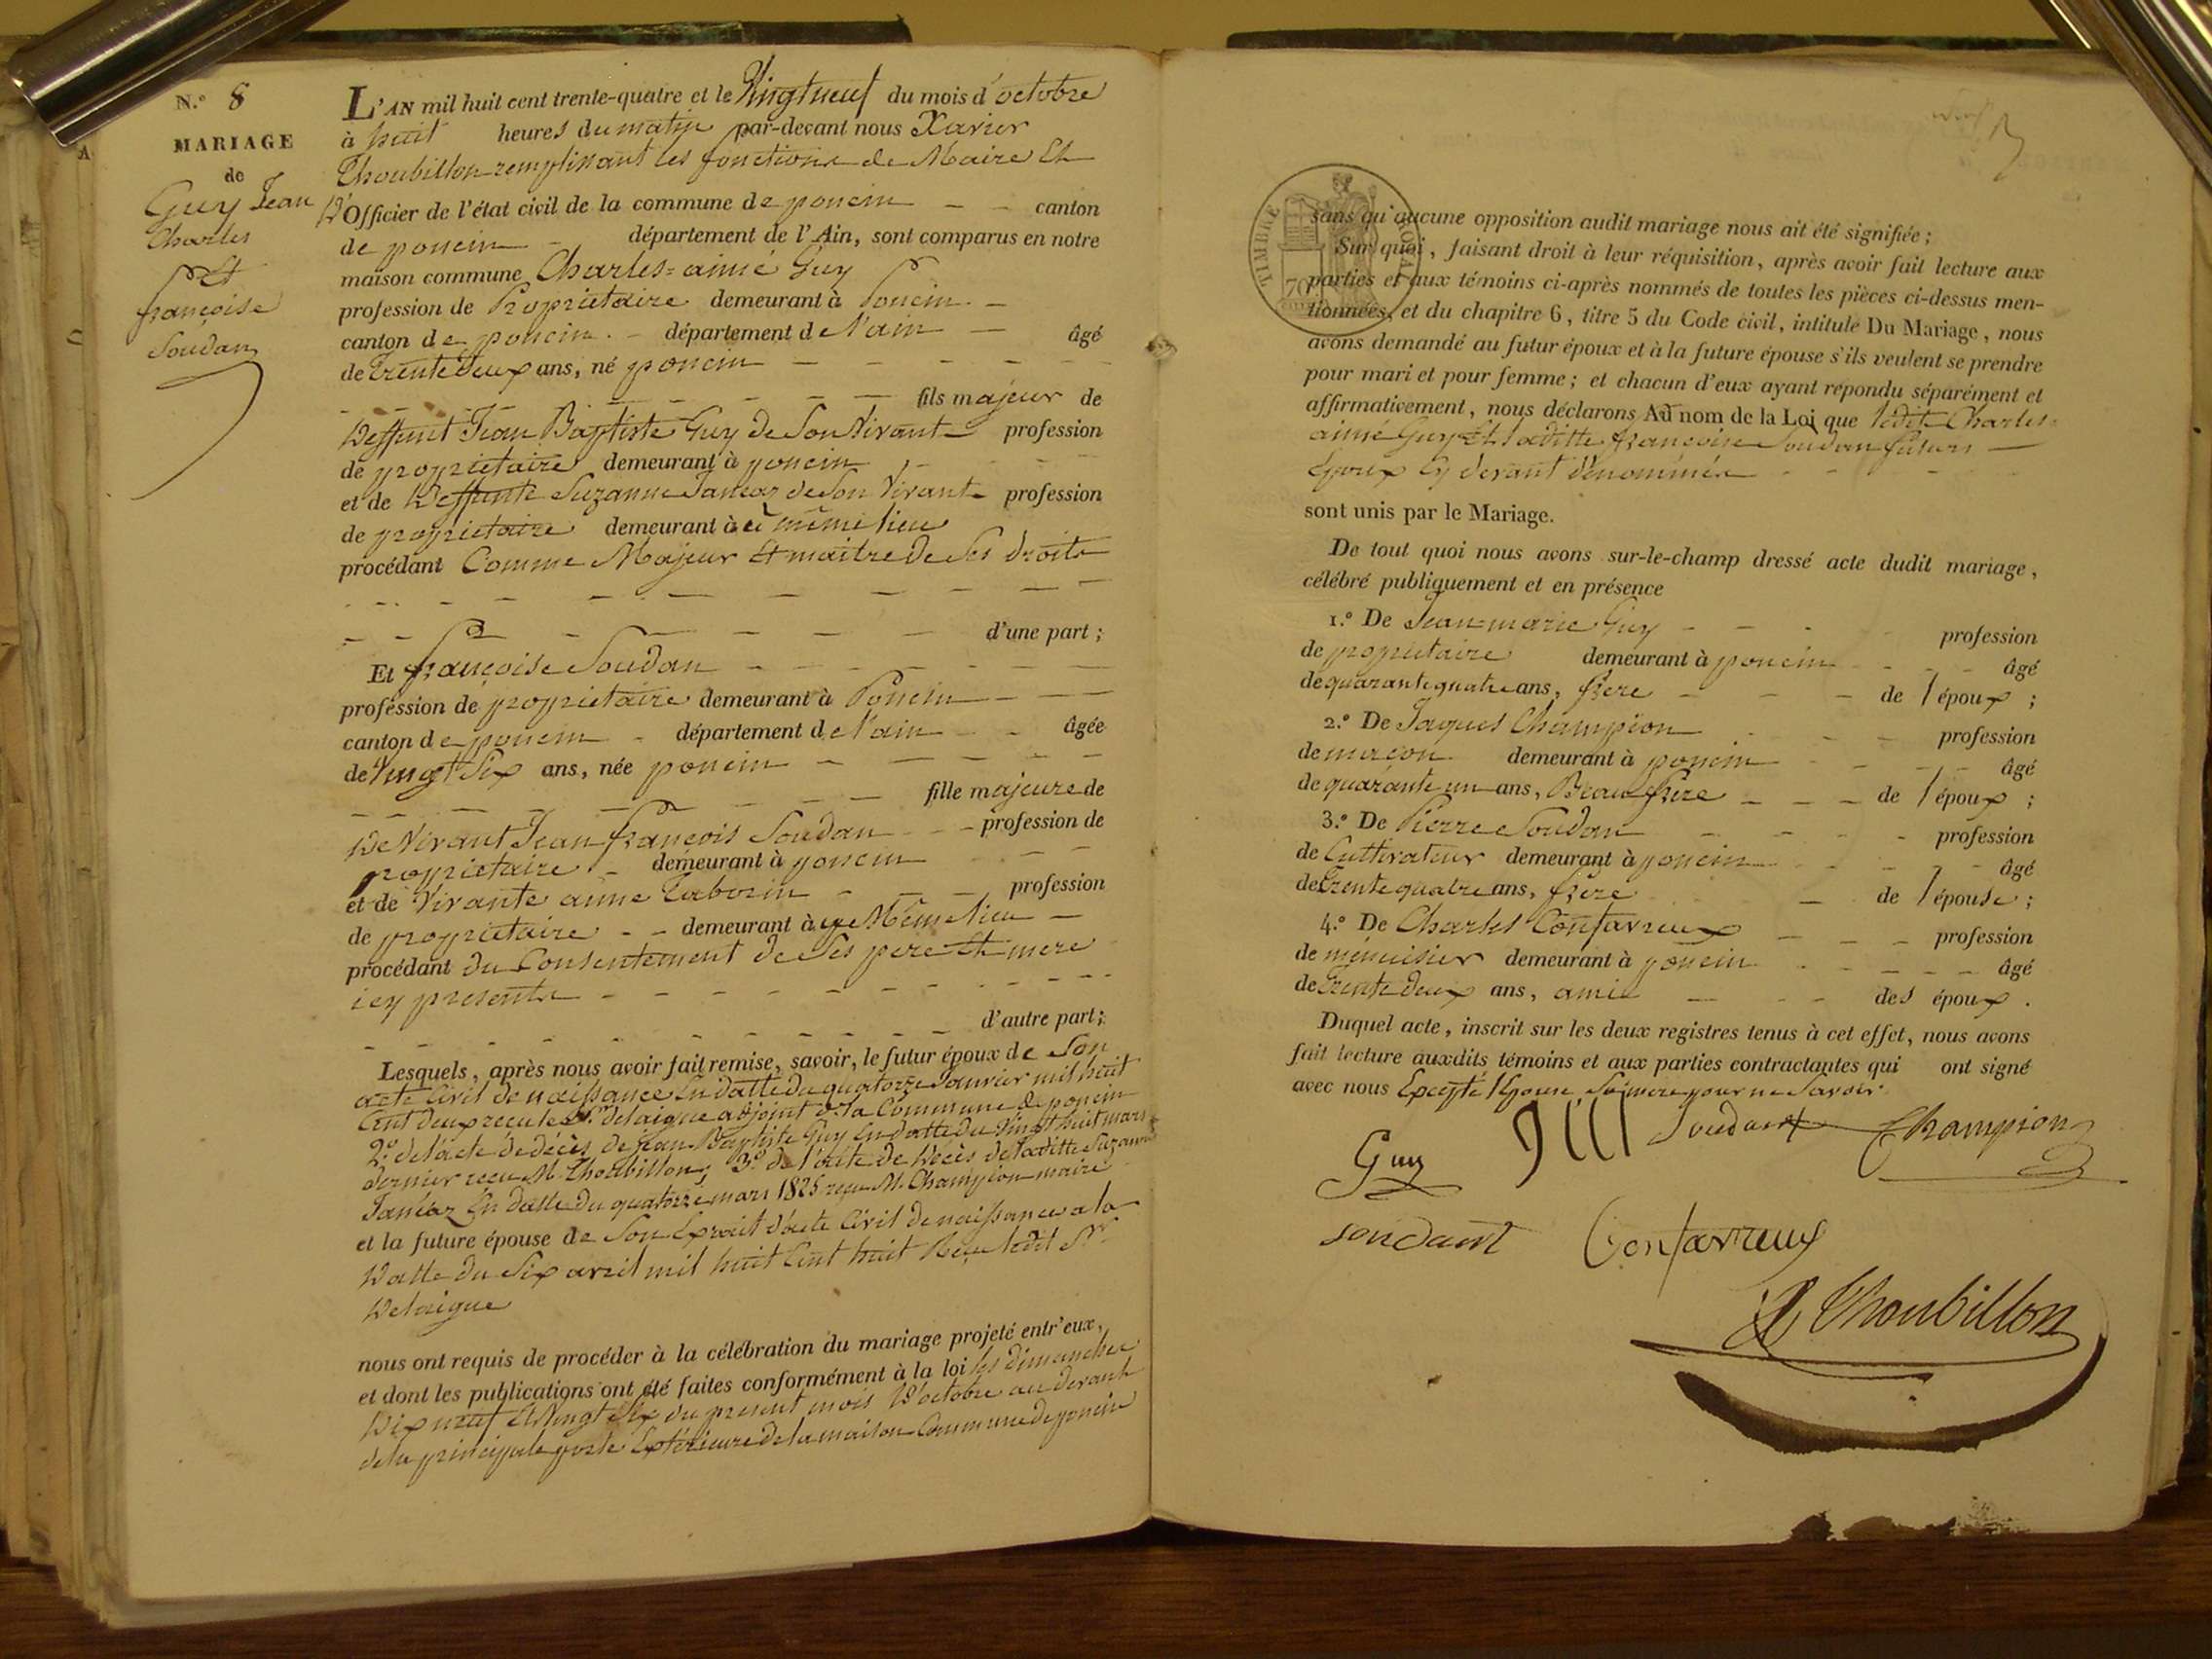 N.º 8
MARIAGE
de
Guy Jean
Charles
Et
françoise
Soudan
L'AN mil huit cent trente-quatre et le Vingt neuf du mois d'octobre
à huit heures du matin par-devant nous Xavier
Thoubillon remplissant les fonctions de Maire Et
D'Officier de l'état civil de la commune de poncin canton
de poncin département de l'Ain, sont comparus en notre
maison commune Charles=aimé Guy
profession de Propriétaire demeurant à Poncin
canton de poncin département de l'ain âgé
de trente deux ans, né poncin
fils majeur de
Deffunt Jean Baptiste Guy de Son Vivant profession
de propriétaire demeurant à poncin
et de Deffunte Suzanne Jancaz de Son Vivant profession
de propriétaire demeurant à cè même lieu
procédant Comme Majeur Et maitre de Ses droits
d'une part ;
Et françoise Soudan
profession de propriétaire demeurant à Poncin
canton de poncin département de l'ain âgée
de Vingt Six ans, née poncin
fille majeure de
De Vivant Jean françois Soudan profession de
propriétaire demeurant à poncin
et de Vivante anne Taborin profession
de propriétaire demeurant à ce Même lieu
procédant du Consentement de Ses pere Et mere
icy presents
d'autre part ;
Lesquels, après nous avoir fait remise, savoir, le futur époux de Son
acte Civil de naissance En datte du quatorze Janvier mil huit
Cent deux reçu le Sr. delaigue adjoint de la Commune de poncin
2.º de l'acte de décès de Jean-Baptiste Guy En datte du Vingt huit mars
dernier reçu M. Thoubillon ; 3.º de l'acte de Decès de laditte Suzanne
Jancaz En datte du quatorze mars 1825 reçu M. Champion maire
et la future épouse de Son Extrait d'acte Civil de naissance a la
Datte du Six avril mil huit Cent huit Reçu ledit Sr.
Delaigue
nous ont requis de procéder à la célébration du mariage projeté entr'eux,
et dont les publications ont été faites conformément à la loi les dimanches
Dix neuf Et Vingt Six du present mois D'octobre au devant
de la principale porte Extérieure de la maison Commune de poncin
TIMBRE ROYAL
70
sans qu'aucune opposition audit mariage nous ait été signifiée ;
Sur quoi, faisant droit à leur réquisition, après avoir fait lecture aux
parties et aux témoins ci-après nommés de toutes les pièces ci-dessus men-
tionnées, et du chapitre 6, titre 5 du Code civil, intitulé Du Mariage, nous
avons demandé au futur époux et à la future épouse s'ils veulent se prendre
pour mari et pour femme ; et chacun d'eux ayant répondu séparément et
affirmativement, nous déclarons Au nom de la Loi que ledit Charles=
aimé Guy Et laditte françoise Soudan futurs
Epoux Cy devant dénommés
sont unis par le Mariage.
De tout quoi nous avons sur-le-champ dressé acte dudit mariage,
célébré publiquement et en présence
1.º De Jean=marie Guy profession
de propriétaire demeurant à poncin âgé
de quarante quatre ans, frere de l'époux ;
2.º De Jaques Champion profession
de maçon demeurant à poncin âgé
de quarante un ans, Beau frere de l'époux ;
3.º De Pierre Soudan profession
de Cultivateur demeurant à poncin âgé
de trente quatre ans, frère de l'épouse ;
4.º De Charles Confavreux profession
de menuisier demeurant à poncin âgé
de trente deux ans, ami des époux.
Duquel acte, inscrit sur les deux registres tenus à cet effet, nous avons
fait lecture auxdits témoins et aux parties contractantes qui ont signé
avec nous Excepté l'Epouse, Sa mere pour ne Savoir.
Guy Soudant Champion
soudant Confavreux
X Thoubillon